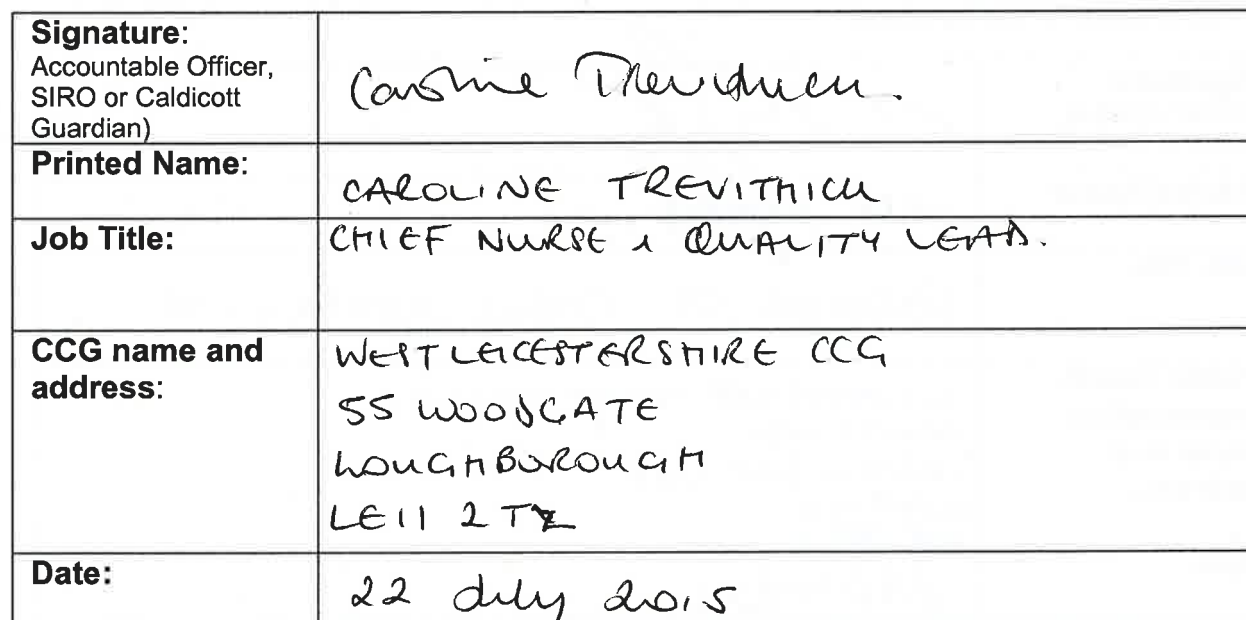 Signature:
Accountable Officer,
SIRO or Caldicott
Guardian)
Caroline Trevithick.
Printed Name:
CAROLINE TREVITHICK
Job Title:
CHIEF NURSE & QUALITY LEAD.
CCG name and
address:
WEST LEICESTERSHIRE CCG
55 WOODGATE
LOUGHBOROUGH
LE11 2TZ
Date:
22 July 2015